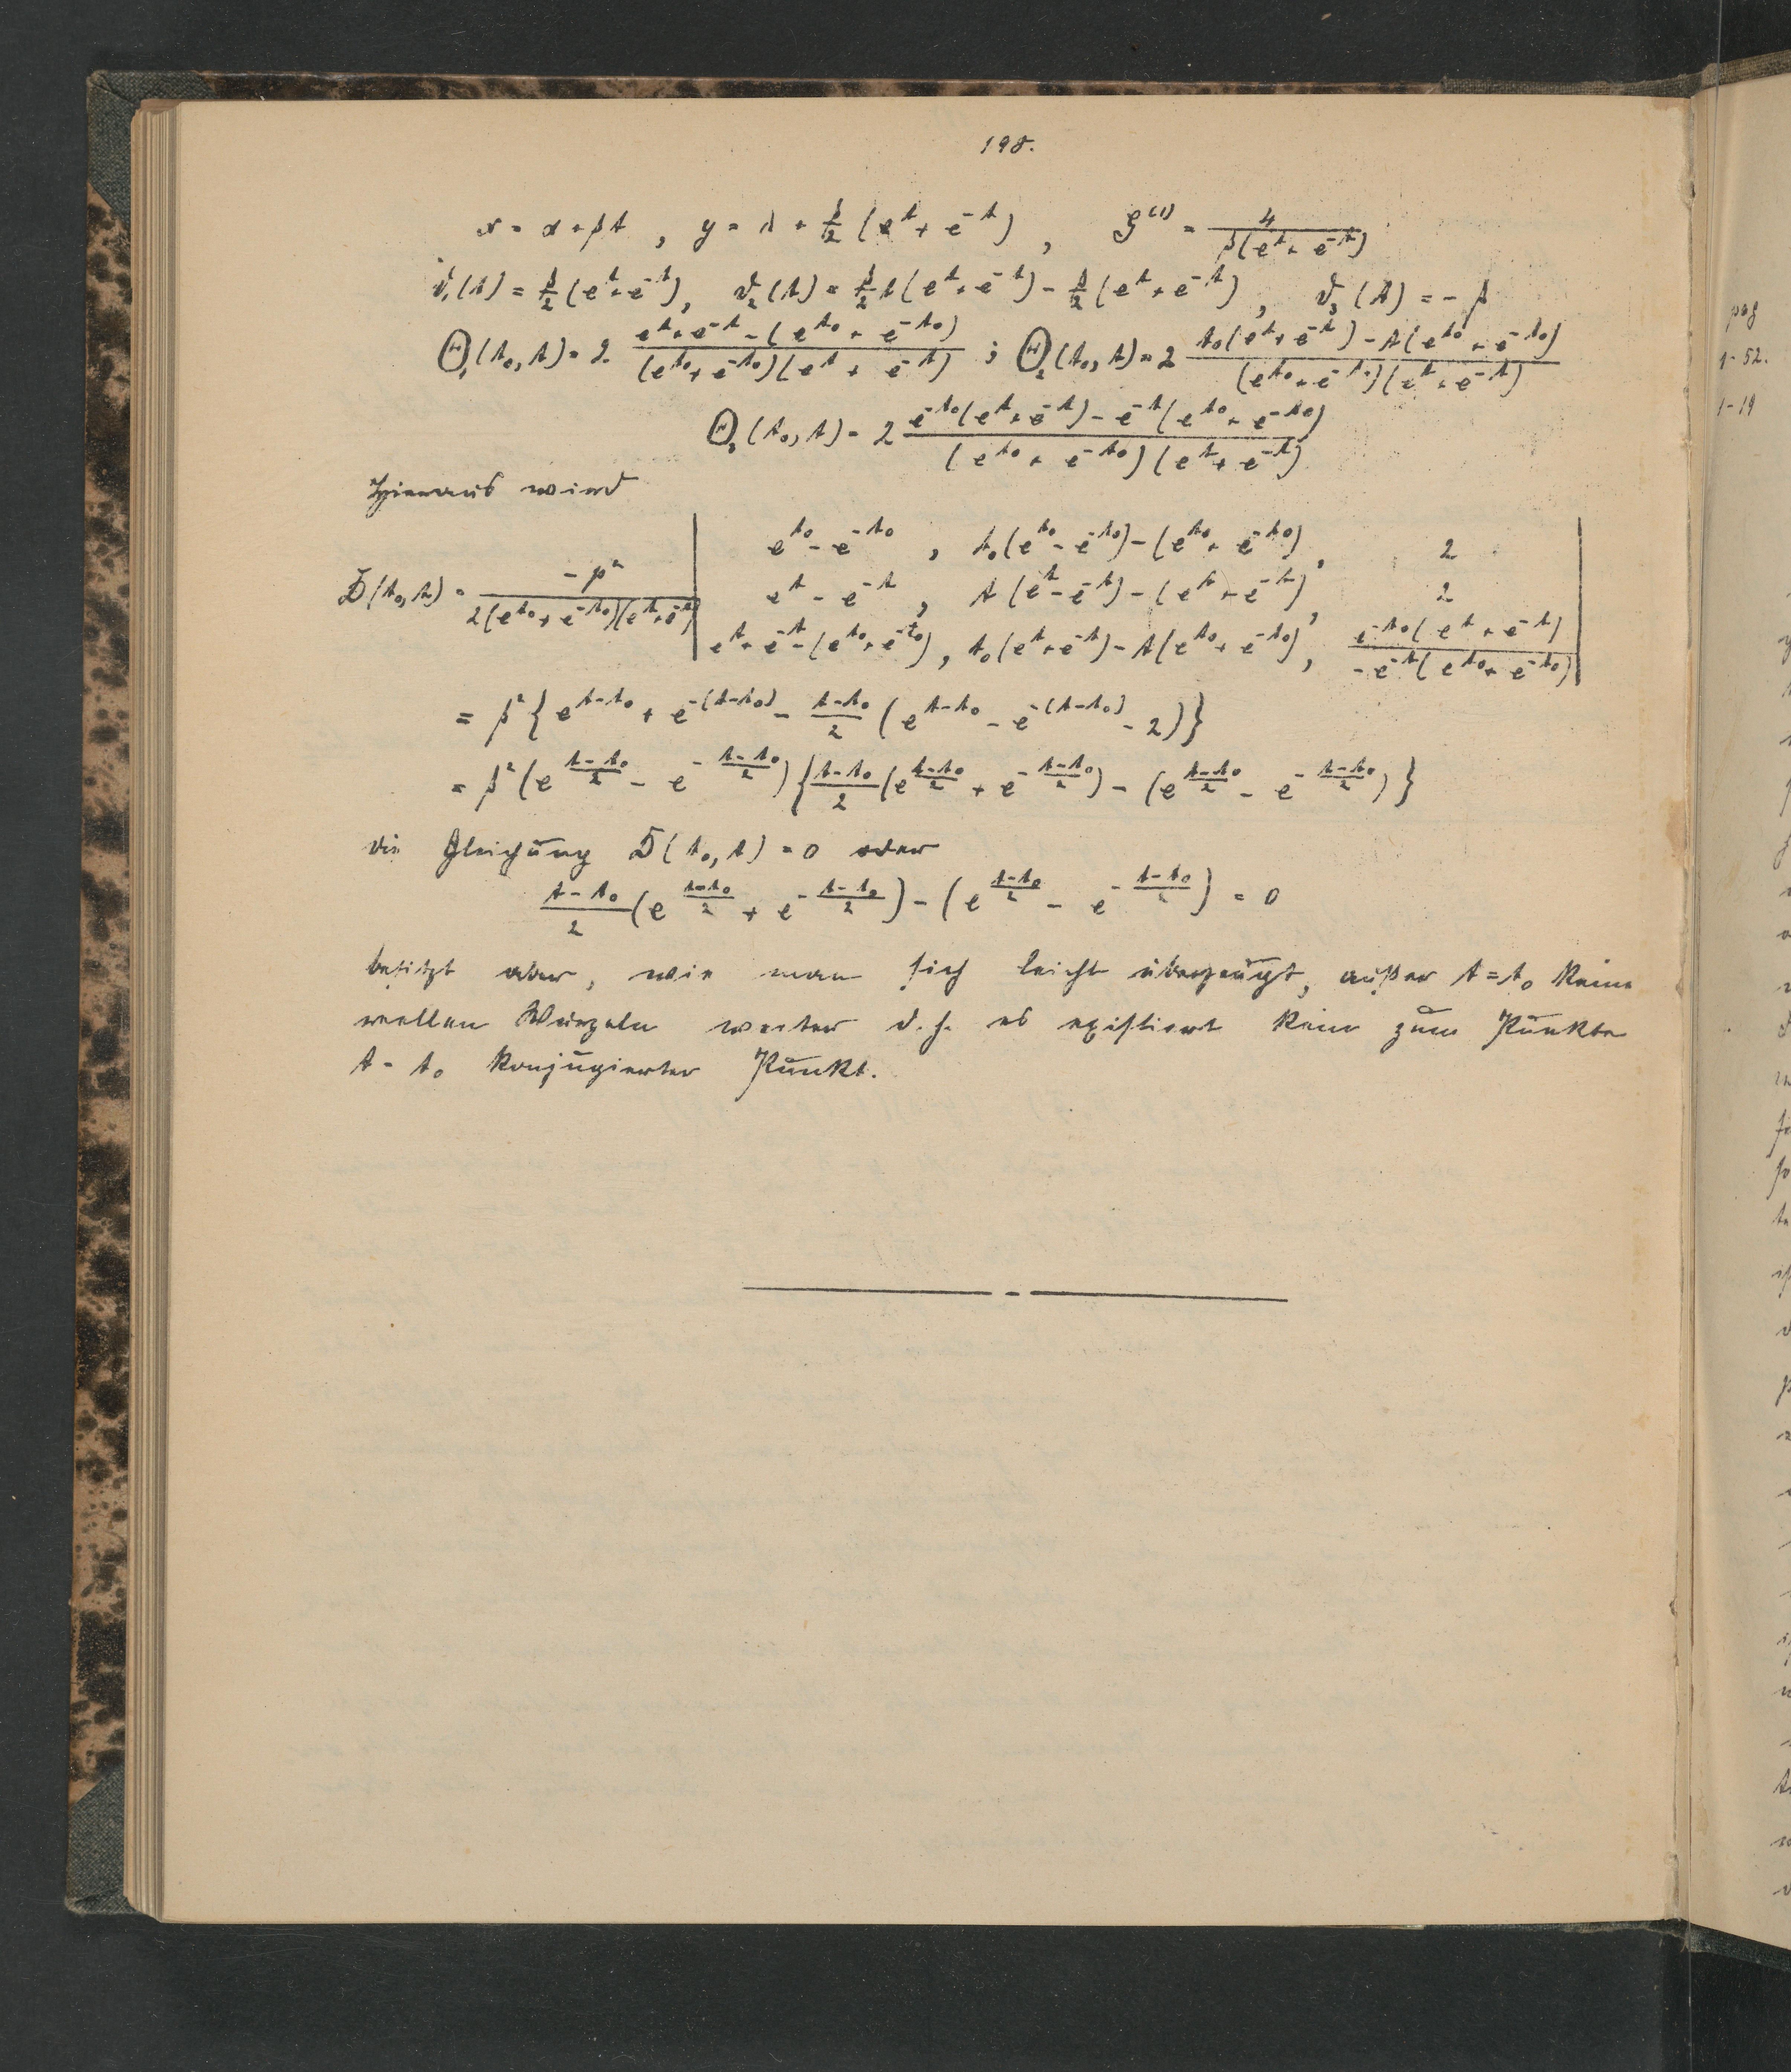 198.
x = α + βt , y = λ + β/2 (e^t + e^{-t}) , G^{(1)} = 4/(β(e^t + e^{-t}))
ϑ₁(t) = β/2 (e^t + e^{-t}), ϑ₂(t) = β/2 t(e^t + e^{-t}) - β/2 (e^t + e^{-t}) , ϑ₃(t) = - β
Θ₁(t₀, t) = 2 (e^t + e^{-t} - (e^{t₀} + e^{-t₀}))/((e^{t₀} + e^{-t₀})(e^t + e^{-t})) ; Θ₂(t₀, t) = 2 (t₀(e^t + e^{-t}) - t(e^{t₀} + e^{-t₀}))/((e^{t₀} + e^{-t₀})(e^t + e^{-t}))
Θ₃(t₀, t) = 2 (e^{-t₀}(e^t + e^{-t}) - e^{-t}(e^{t₀} + e^{-t₀}))/((e^{t₀} + e^{-t₀})(e^t + e^{-t}))
Hieraus wird
e^{t₀} - e^{-t₀} , t₀(e^{t₀} - e^{-t₀}) - (e^{t₀} + e^{-t₀}) , 2
D(t₀, t) = -β²/(2(e^{t₀} + e^{-t₀})(e^t + e^{-t})) | e^t - e^{-t} , t(e^t - e^{-t}) - (e^t + e^{-t}) , 2 |
e^t + e^{-t} - (e^{t₀} + e^{-t₀}) , t₀(e^t + e^{-t}) - t(e^{t₀} + e^{-t₀}) , e^{-t₀}(e^t + e^{-t}) - e^{-t}(e^{t₀} + e^{-t₀})
= β² { e^{t-t₀} + e^{-(t-t₀)} - (t-t₀)/2 (e^{t-t₀} - e^{-(t-t₀)} - 2)}
= β² (e^{(t-t₀)/2} - e^{-(t-t₀)/2}) {(t-t₀)/2 (e^{(t-t₀)/2} + e^{-(t-t₀)/2}) - (e^{(t-t₀)/2} - e^{-(t-t₀)/2})}
die Gleichung D(t₀, t) = 0 oder
(t-t₀)/2 (e^{(t-t₀)/2} + e^{-(t-t₀)/2}) - (e^{(t-t₀)/2} - e^{-(t-t₀)/2}) = 0
besitzt aber, wie man sich leicht überzeugt, außer t = t₀ keine
reellen Wurzeln weiter d. h. es existiert kein zum Punkte
t = t₀ konjugierter Punkt.
pag
1-52.
1-19